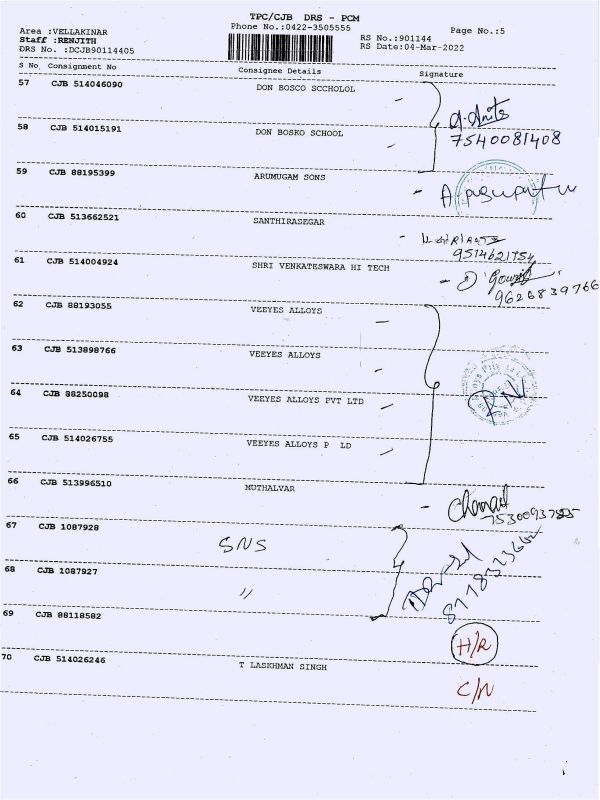 TPC/CJB DRS - PCM
Phone No.:0422-3505555
Page No.:5
Area :VELLAKINAR
Staff :RENJITH
DRS No. :DCJB90114405
RS No.:901144
RS Date:04-Mar-2022
S No Consignment No Consignee Details Signature
57 CJB 514046090 DON BOSCO SCCHOLOL
58 CJB 514015191 DON BOSKO SCHOOL
7540081408
59 CJB 88195399 ARUMUGAM SONS
60 CJB 513662521 SANTHIRASEGAR
9514621754
61 CJB 514004924 SHRI VENKATESWARA HI TECH
9626839766
62 CJB 88193055 VEEYES ALLOYS
63 CJB 513898766 VEEYES ALLOYS
64 CJB 88250098 VEEYES ALLOYS PVT LTD
65 CJB 514026755 VEEYES ALLOYS P LD
66 CJB 513996510 MUTHALVAR
67 CJB 1087928 SNS
68 CJB 1087927 "
69 CJB 88118582 H/R
70 CJB 514026246 T LASKHMAN SINGH
C/N